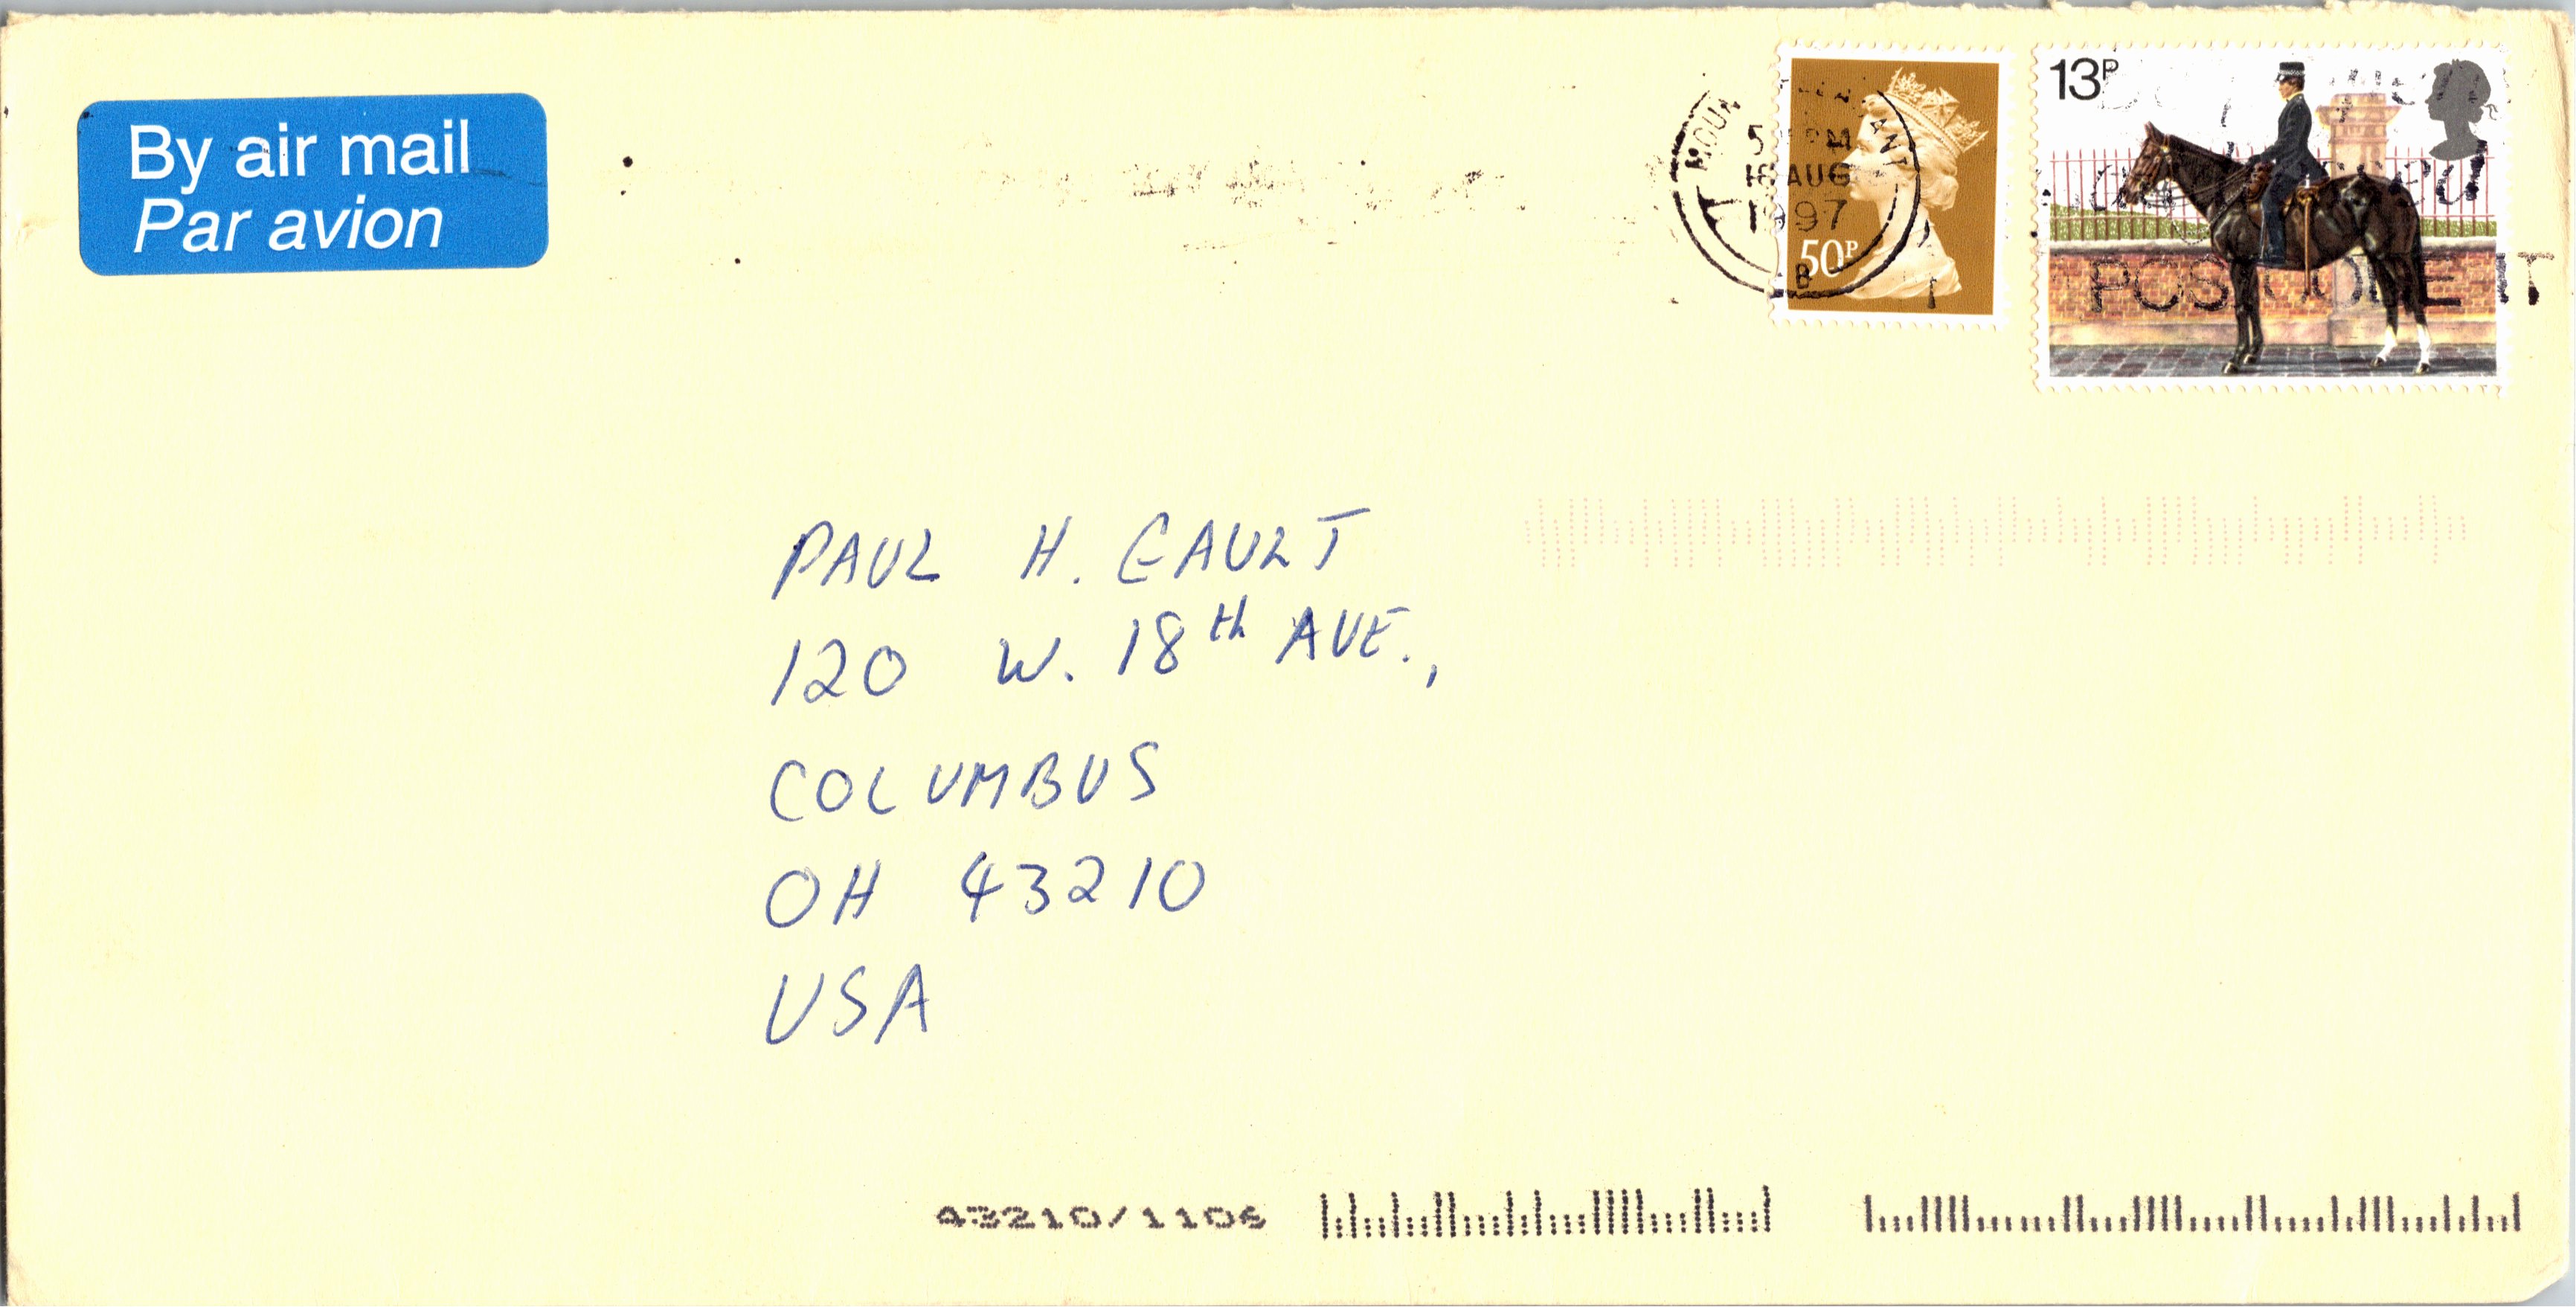 By air mail
Par avion
AUG
1997
B
50P
13P
POSTCODE IT
PAUL H. GAULT
120 W. 18th AVE.,
COLUMBUS
OH 43210
USA
43210/1106